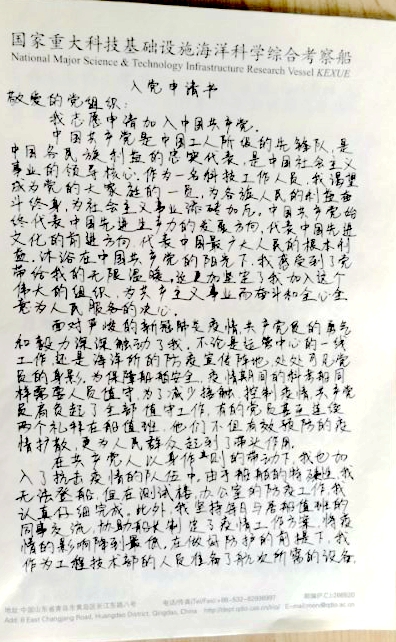 国家重大科技基础设施海洋科学综合考察船
National Major Science & Technology Infrastructure Research Vessel KEXUE
入党申请书
敬爱的党组织：
我志愿申请加入中国共产党。
中国共产党是中国工人阶级的先锋队，是
中国各民族利益的忠实代表，是中国社会主义
事业的领导核心。作为一名科技工作人员，我渴望
成为党的大家庭的一员，为各族人民的利益奋
斗终身，为社会主义事业添砖加瓦。中国共产党始
终代表中国先进生产力的发展方向，代表中国先进
文化的前进方向，代表中国最广大人民的根本利
益。沐浴在中国共产党的阳光下，我感受到了党
带给我的无限温暖，这更加坚定了我加入这个
伟大的组织，为共产主义事业而奋斗和全心全
意为人民服务的决心。
面对严峻的新冠肺炎疫情，共产党员的勇气
和毅力深深触动了我。不论是运管中心的一线
工作还是海洋所的防疫宣传阵地，处处可见党
员的身影。为保障船舶安全，疫情期间的科考船同
样需要人员值守，为了减少接触，控制疫情，共产党
员肩负起了全部值守工作，有的党员甚至连续
两个礼拜在船值班，他们不但有效预防的疫
情扩散，更为人民群众起到了带头作用。
在共产党人以身作则的带动下，我也加
入了抗击疫情的队伍中，由于船舶的特殊性，我
无法登船，但在测试楼，办公室的防疫工作，我
认真仔细完成。此外，我坚持每日与居船值班的
同事交流，协助船长制定了疫情工作方案，将疫
情的影响降到最低。在做好防护的前提下，我
作为工程技术部的人员准备了航次所需的设备、
地址:中国山东省青岛市黄岛区长江东路八号
电话/传真(Tel/Fax):+86-532-82898997
邮编/P.C.:266520
Add: 8 East Changjiang Road, Huangdao District, Qingdao, China